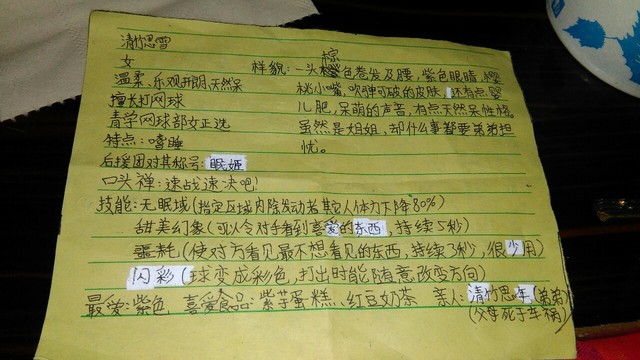 清竹思雪
女
样貌:一头棕色卷发及腰,紫色眼睛,樱
温柔、乐观开朗、天然呆
桃小嘴,吹弹可破的皮肤,还有点婴
擅长打网球
儿肥,呆萌的声音,有点天然呆性格。
青学网球部女正选
虽然是姐姐,却什么事都要弟弟担
特点:嗜睡
忧。
后援团对其称号:眠姬
口头禅:速战速决吧!
技能:无眠域(指定区域内除发动者其它人体力下降80%)
甜美幻象(可以令对手看到喜爱的东西,持续5秒)
噩耗(使对方看见最不想看见的东西,持续3秒,很少用)
闪彩(球变成彩色,打出时能随意改变方向)
最爱:紫色 喜爱食品:紫芋蛋糕、红豆奶茶 亲人:清竹思年(弟弟)
(父母死于车祸)